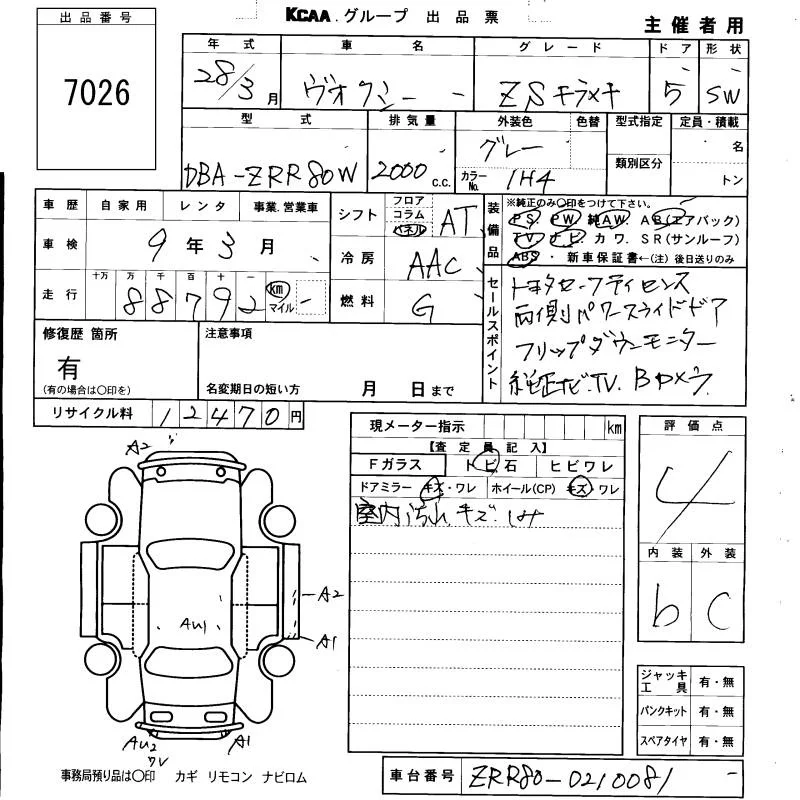 KCAA. グループ 出品票
主催者用
出品番号
7026
年式 車名 グレード ドア 形状
28/3月 ヴォクシー ZSキラメキ 5 SW
型式 排気量 外装色 色替 型式指定 定員・積載
DBA-ZRR80W 2000 c.c. グレー 名
カラーNo. 1H4 類別区分 トン
車歴 自家用 レンタ 事業.営業車
シフト フロア コラム パネル AT
装備品 ※純正のみ〇印をつけて下さい。
PS PW 純AW. AB(エアバック)
TV. ナビ カワ. SR(サンルーフ)
ABS・新車保証書←(注)後日送りのみ
車検 9年3月
冷房 AAC
走行 十万 万 千 百 十 一
88792 km マイル
燃料 G
セールスポイント
トヨタセーフティセンス
両側パワースライドドア
フリップダウンモニター
純正ナビ.TV. Bカメラ
修復歴 箇所
有
(有の場合は〇印を)
注意事項
名変期日の短い方 月 日まで
リサイクル料 12470円
現メーター指示 km
【査定員記入】
Fガラス トビ石 ヒビワレ
ドアミラー キズ・ワレ ホイール(CP) キズ ワレ
室内汚れ キズ. シミ
評価点
4
内装 外装
b C
A2
A2
AU1
A1
AU2
A1
ジャッキ工具 有・無
パンクキット 有・無
スペアタイヤ 有・無
事務局預り品は〇印 カギ リモコン ナビロム
車台番号 ZRR80-0210081